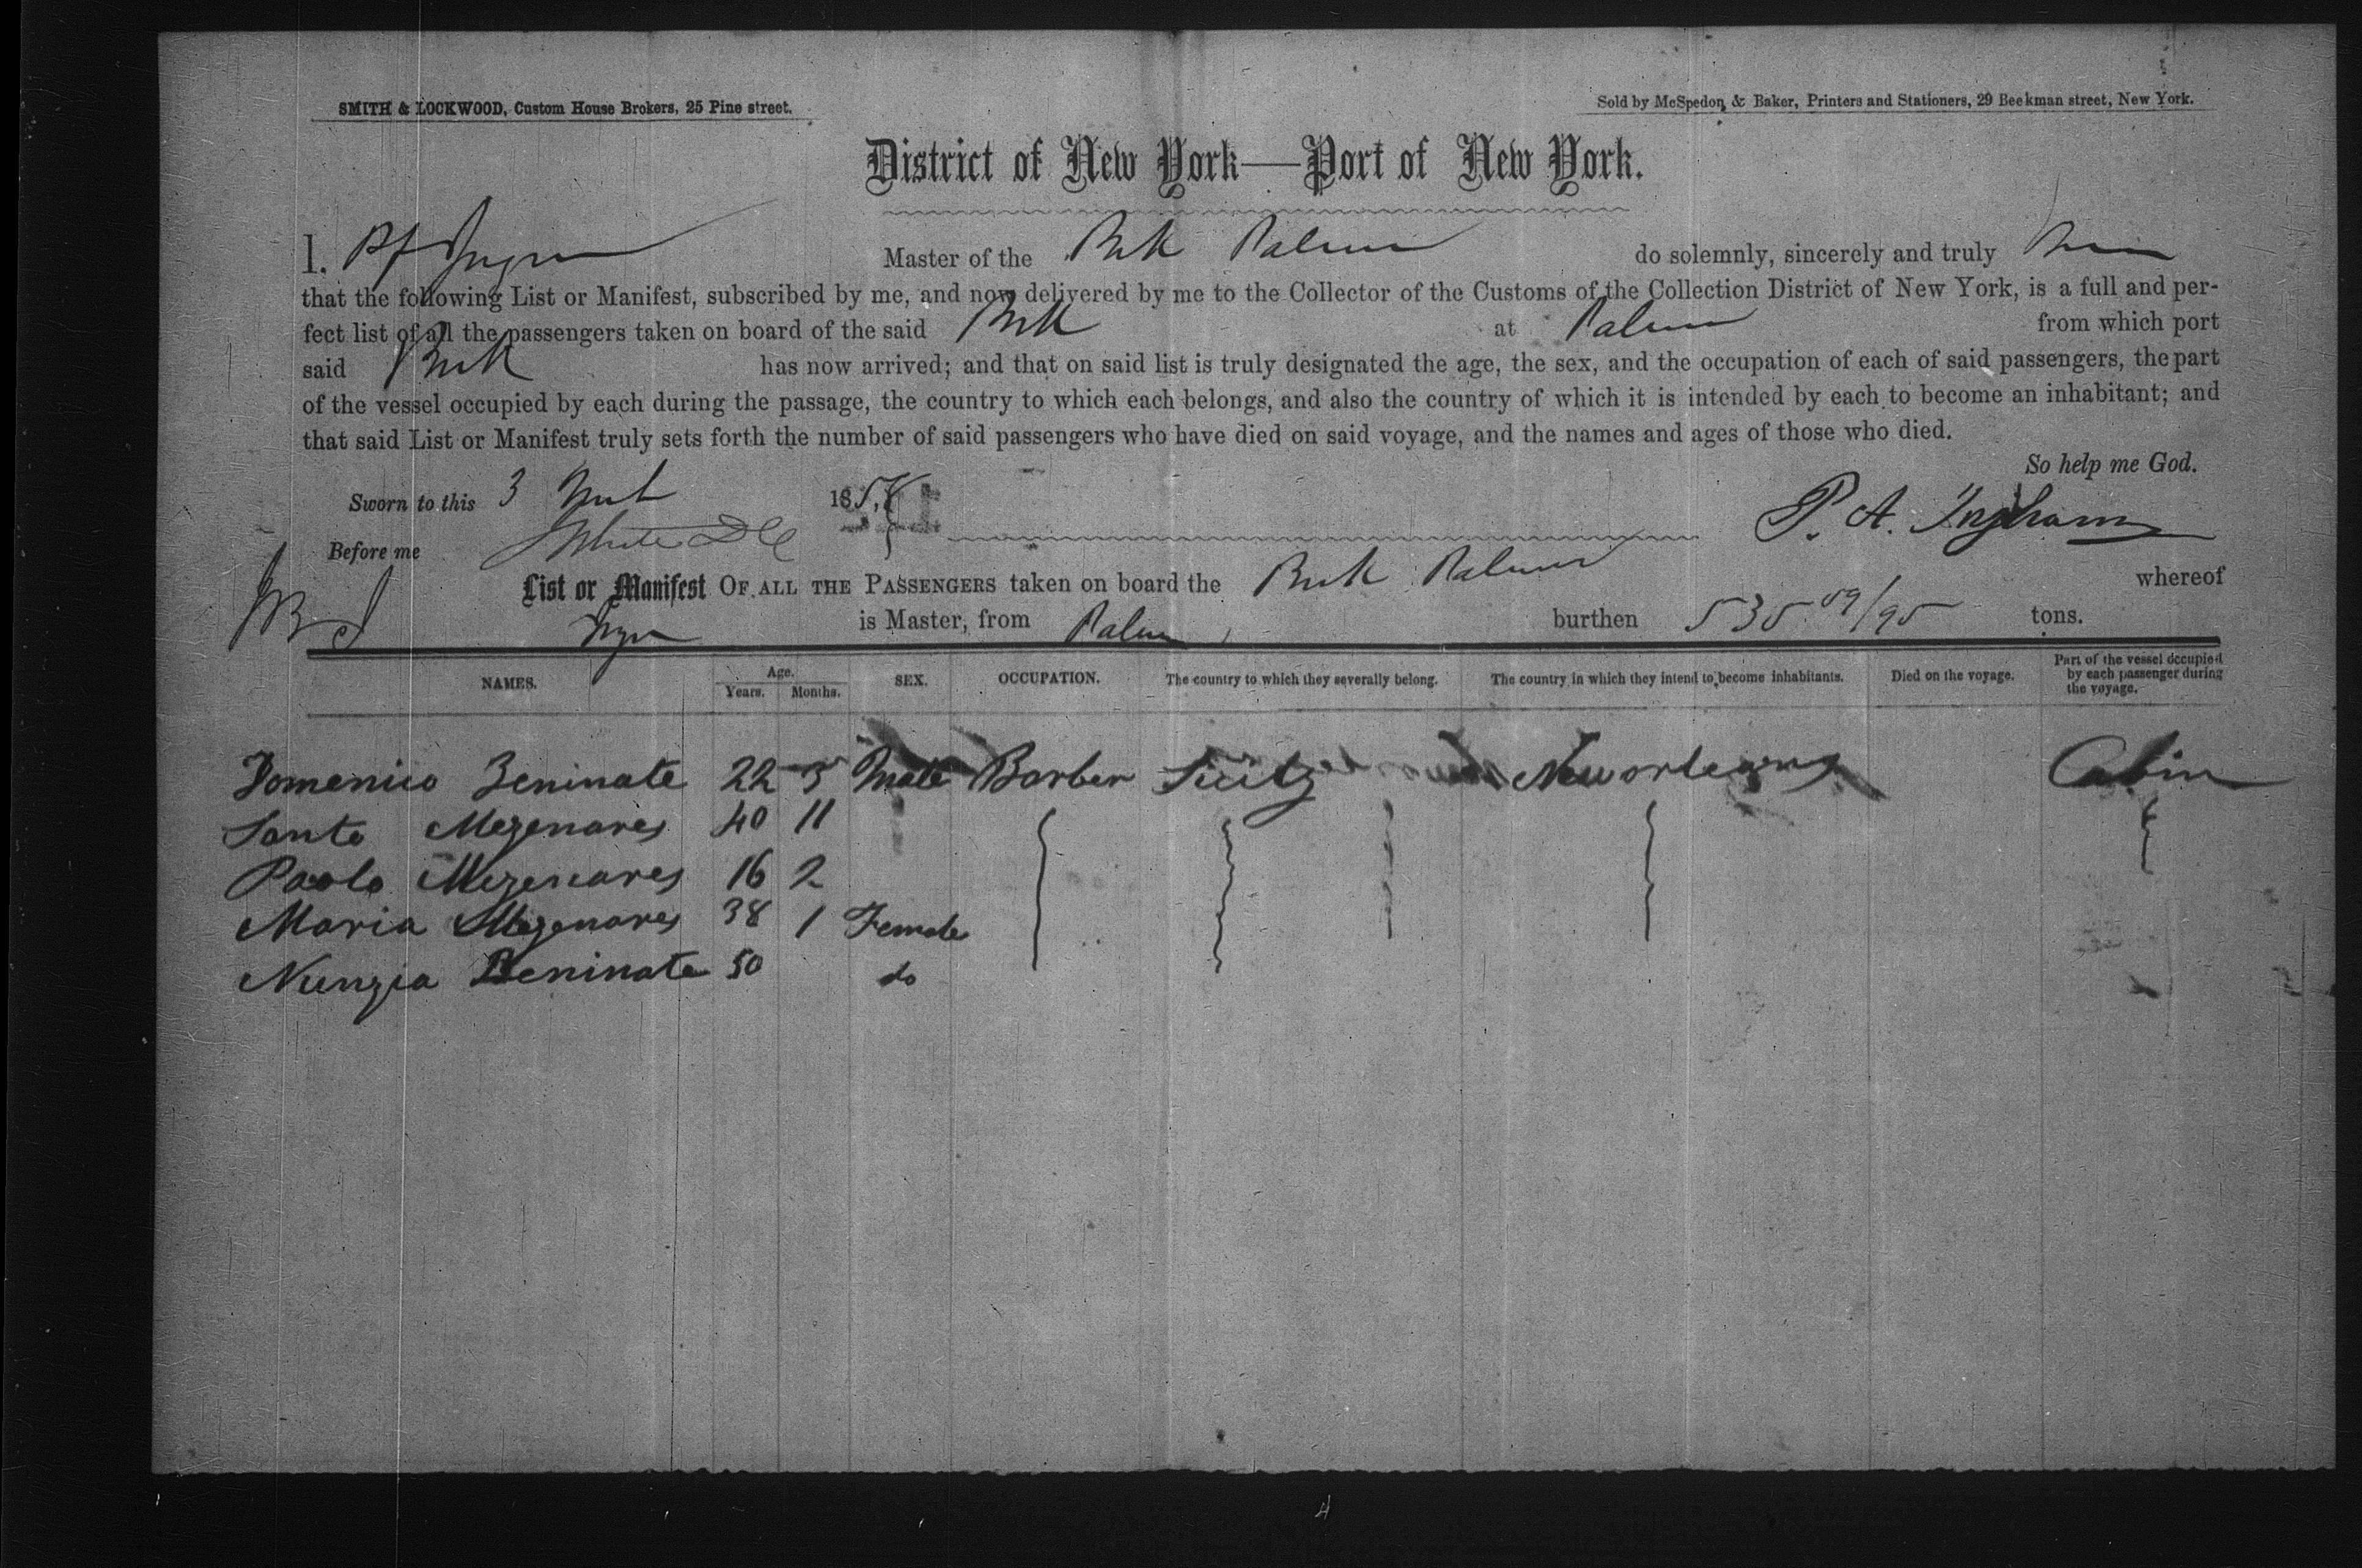 SMITH & LOCKWOOD, Custom House Brokers, 25 Pine street.
Sold by McSpedon & Baker, Printers and Stationers, 29 Beekman street, New York.
District of New York—Port of New York.
I. Master of the do solemnly, sincerely and truly
that the following List or Manifest, subscribed by me, and now delivered by me to the Collector of the Customs of the Collection District of New York, is a full and per-
fect list of all the passengers taken on board of the said at from which port
said has now arrived; and that on said list is truly designated the age, the sex, and the occupation of each of said passengers, the part
of the vessel occupied by each during the passage, the country to which each belongs, and also the country of which it is intended by each to become an inhabitant; and
that said List or Manifest truly sets forth the number of said passengers who have died on said voyage, and the names and ages of those who died.
So help me God.
Sworn to this 3 185
P. A. Ingham
Before me
List or Manifest OF ALL THE PASSENGERS taken on board the whereof
is Master, from burthen 535 09/95 tons.
NAMES. Age. Years. Months. SEX. OCCUPATION. The country to which they severally belong. The country in which they intend to become inhabitants. Died on the voyage. Part of the vessel occupied by each passenger during the voyage.
Domenico Beninate 22 3 Male Barber Sicily New orleans Cabin
Santo Mezenares 40 11
Paolo Mezenares 16 2
Maria Mezenares 38 1 Female
Nunzia Beninate 50 do
4